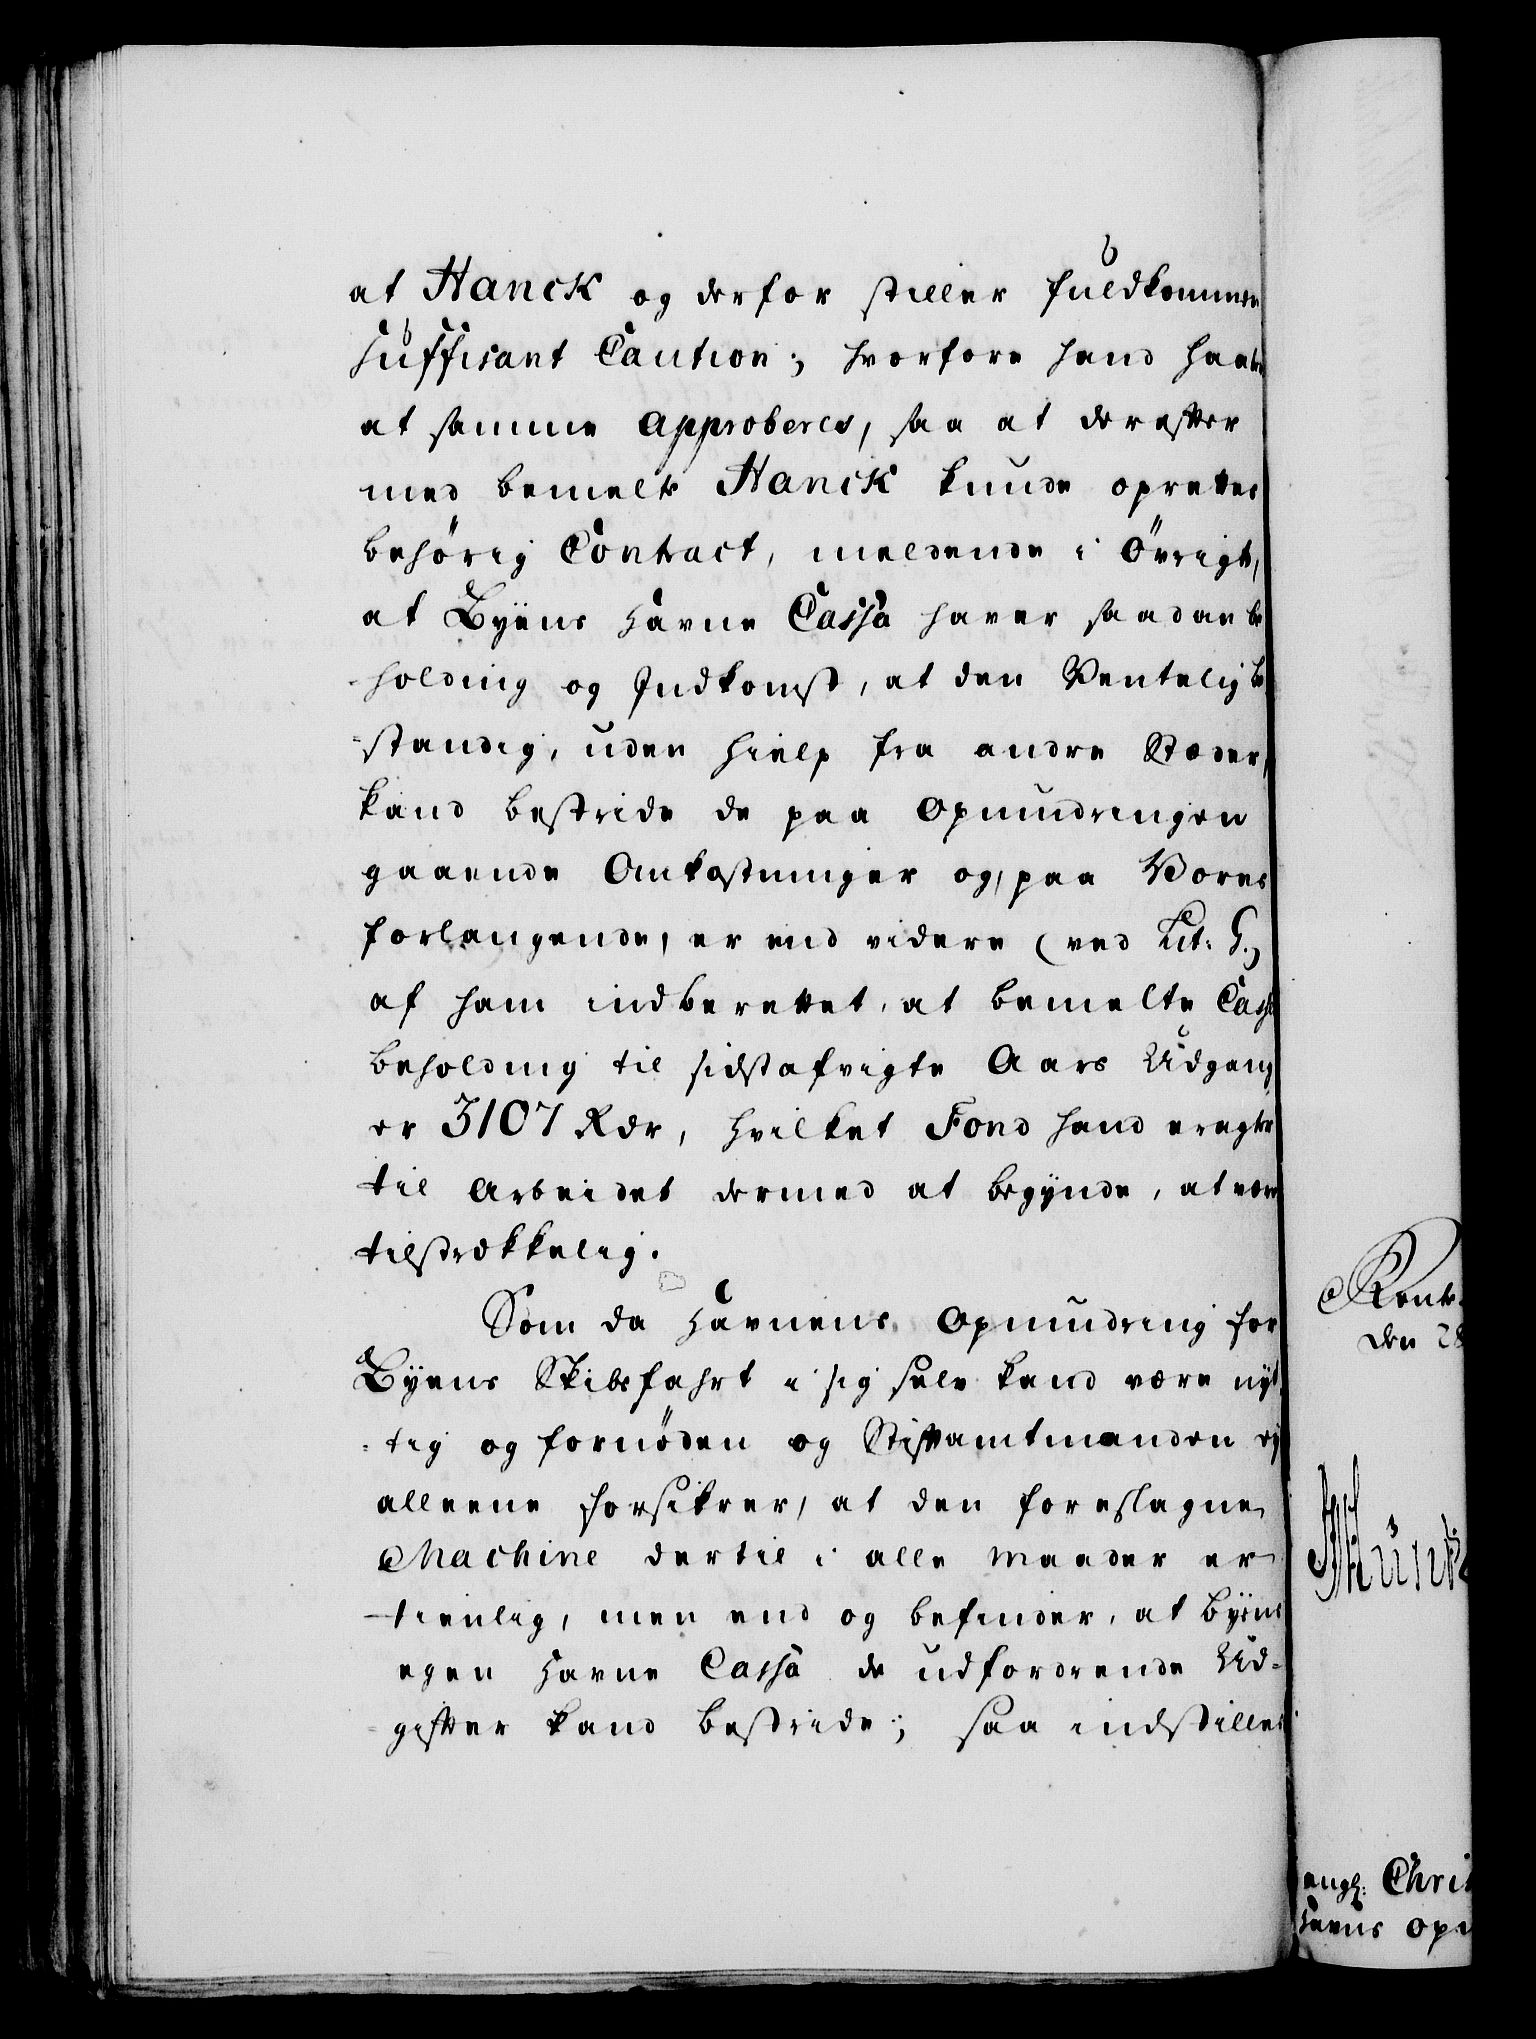 at Hanck og derfor stiller fuldkommen
suffisant Caution; hvorfore hand haaber
at samme approberes, saa at derefter
med bemelte Hanck kunde oprettes
behörig Contract, meldende i Övrigt,
at Byens Havne Cassa haver saadan be
holding og Indkomst, at den Ventelig be
standig, uden hielp fra andre Stæder,
kand bestride de paa Opmudringen
gaaende Omkostninger og, paa Vores
forlangende, er end videre (ved Lit: G.)
af ham indberettet, at bemelte Cassa
beholding til sidstafvigte Aars Udgang
er 3107 Rdr, hvilket Fond hand eragter
til Arbeidet dermed at begynde, at være
tilstrækkelig.
Som da Havnens Opmudring for
Byens Skibsfahrt i sig selv kand være nyt
tig og fornöden og Stiftamtmanden ej
alleene forsikrer, at den foreslagne
Machine dertil i alle Maader er
tienlig, men end og befinder, at Byens
egen Havne Cassa de udfordrende Ud-
gifter kand bestride; saa indstilles
Rentek
den 28
angl: Chri
Havns op